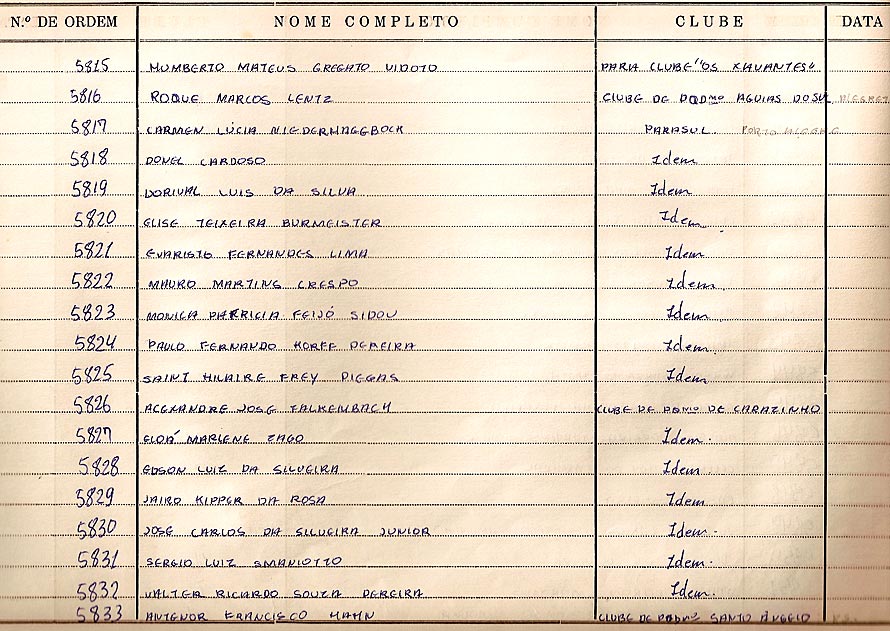 N.º DE ORDEM NOME COMPLETO CLUBE DATA
5815 HUMBERTO MATEUS GREGATO VIDOTO PARA CLUBE "OS XAVANTES"
5816 ROQUE MARCOS LENTZ CLUBE DE PQDMO AGUIAS DO SUL
5817 CARMEN LÚCIA NIEDERMAGGBOCK PARASUL PORTO ALEGRE
5818 DONEL CARDOSO Idem
5819 DORIVAL LUIS DA SILVA Idem
5820 ELISE TEIXEIRA BURMEISTER Idem
5821 EVARISTO FERNANDES LIMA Idem
5822 MAURO MARTINS CRESPO Idem
5823 MONICA PATRICIA FEIJÓ SIDOU Idem
5824 PAULO FERNANDO KORFF PEREIRA Idem
5825 SAINT HILAIRE FREY DIEGAS Idem
5826 ALEXANDRE JOSE FALKEMBACH CLUBE DE PQDMO DE CARAZINHO
5827 ELOÁ MARLENE ZAGO Idem.
5828 EDSON LUIZ DA SILVEIRA Idem
5829 JAIRO KIPPER DA ROSA Idem
5830 JOSE CARLOS DA SILVEIRA JUNIOR Idem.
5831 SERGIO LUIZ SMANIOTTO Idem.
5832 VALTER RICARDO SOUZA PEREIRA Idem.
5833 ANTENOR FRANCISCO HAHN CLUBE DE PQDMO SANTO ÂNGELO RS.